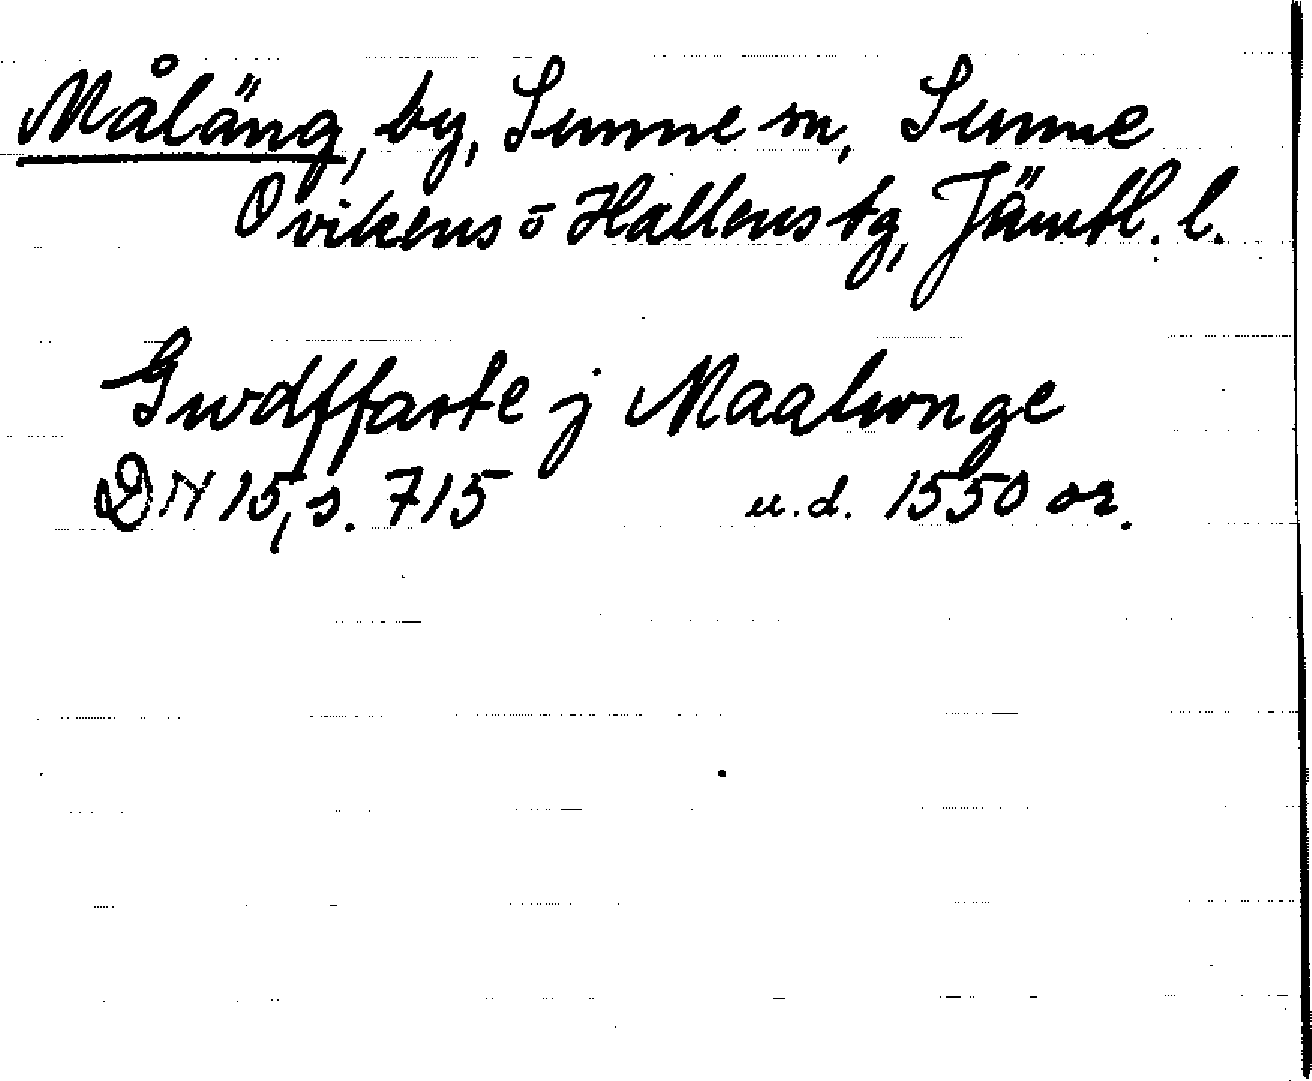 Måläng, by, Sunne sn, Sunne
Ovikens o Hallens tg, Jämtl. l.
Gwdffaste j Maalwnge
DN 15, s. 715 u.d. 1550 or.